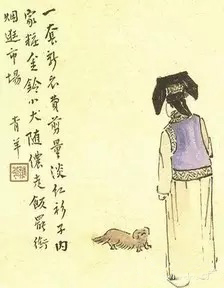 一套新衣費剪量淡红衫子内
家粧金鈴小犬隨儂走飯罷銜
烟逛市場
青羊